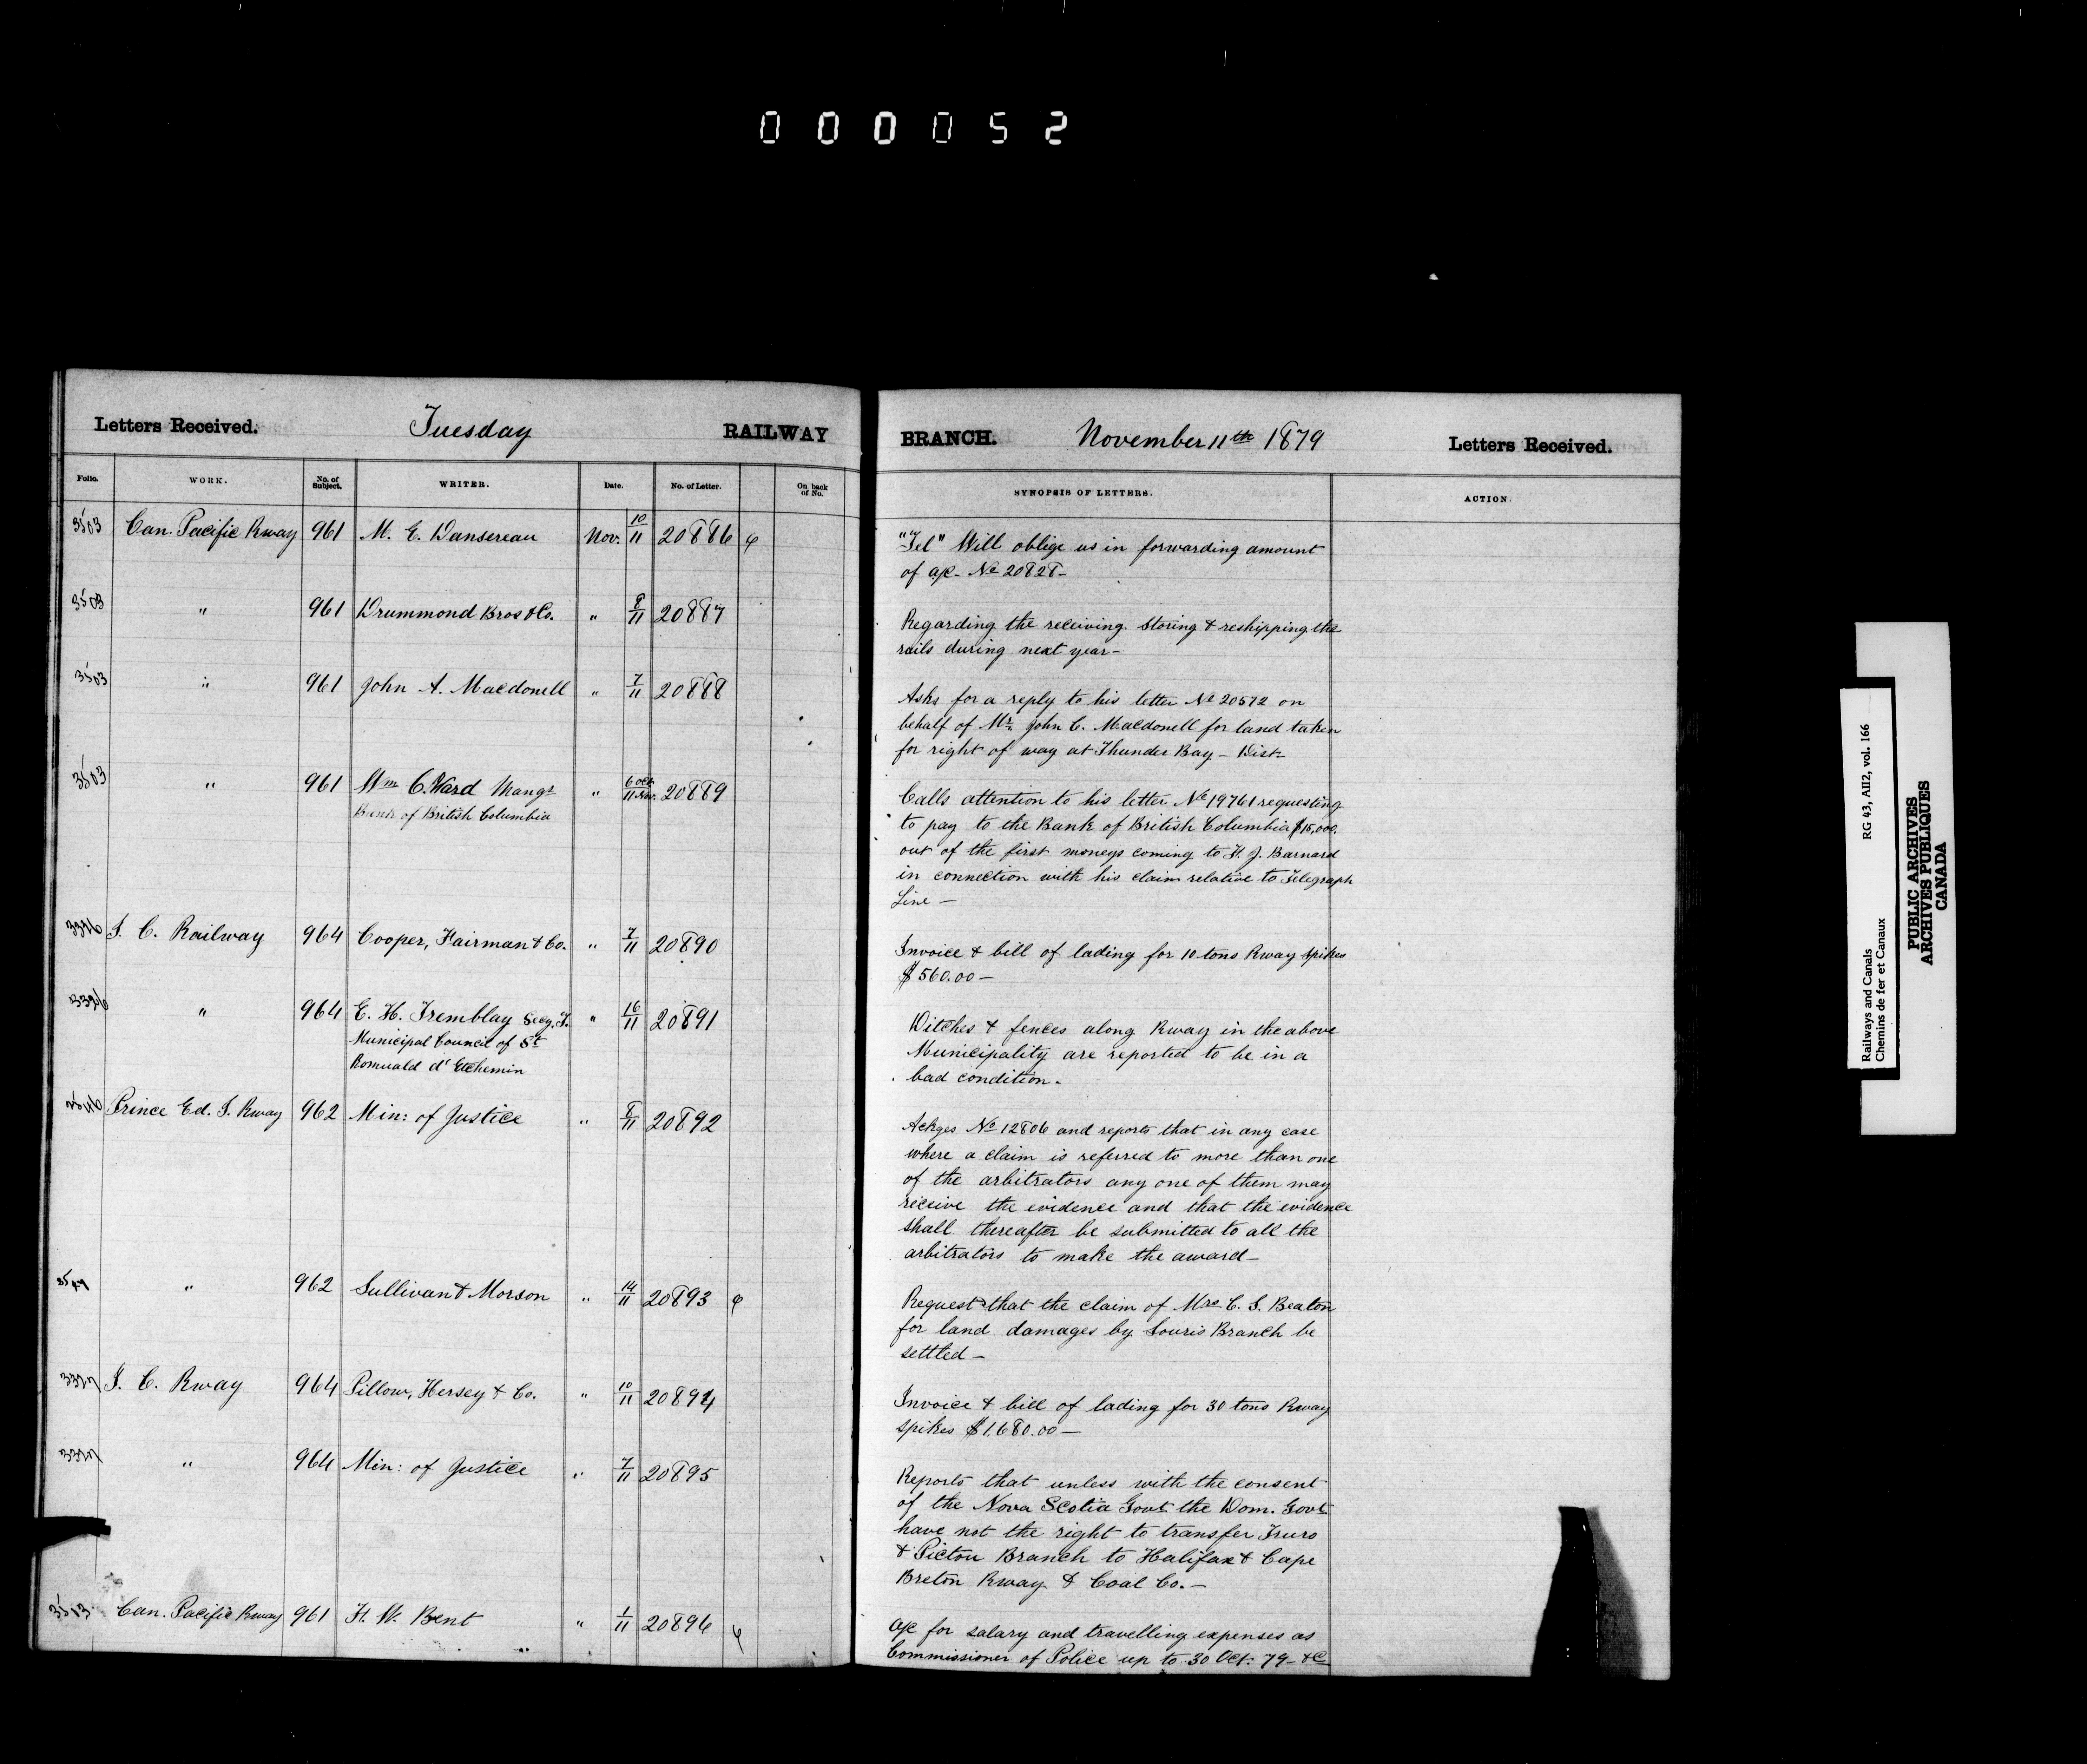 000052
Letters Received. Tuesday RAILWAY
BRANCH. November 11th 1879 Letters Received.
Folio. WORK. No. of Subject. WRITER. Date. No. of Letter. On back of No.
SYNOPSIS OF LETTERS. ACTION.
3503 Can. Pacific Rway 961 M. E. Dansereau Nov. 10/11 20886
"Tel" Will oblige us in forwarding amount
of a/c - No 20828 -
3503 " 961 Drummond Bros & Co. " 8/11 20887
Regarding the receiving. Storing & reshipping the
rails during next year -
3503 " 961 John A. Macdonell " 7/11 20888
Asks for a reply to his letter No 20572 on
behalf of Mr. John C. Macdonell for land taken
for right of way at Thunder Bay - Dist-
3503 " 961 Wm C. Ward Mangr " 6 Oct. / 11 Nov. 20889
Bank of British Columbia
Calls attention to his letter No 19761 requesting
to pay to the Bank of British Columbia $15,000.
out of the first moneys coming to F. J. Barnard
in connection with his claim relative to Telegraph
Line -
3326 I. C. Railway 964 Cooper, Fairman & Co. " 7/11 20890
Invoice & bill of lading for 10 tons Rway spikes
$560.00 -
3326 " 964 E. H. Tremblay Secy. T. " 16/11 20891
Municipal Council of St
Romuald d'Etchemin
Ditches & fences along Rway in the above
Municipality are reported to be in a
bad condition.
Prince Ed. I. Rway 962 Min: of Justice " 8/11 20892
Ackges No 12806 and reports that in any case
where a claim is referred to more than one
of the arbitrators any one of them may
receive the evidence and that the evidence
shall thereafter be submitted to all the
arbitrators to make the award -
" 962 Sullivan & Morson " 14/11 20893
Requests that the claim of Mrs C. S. Beaton
for land damages by Souris Branch be
settled -
3327 I. C. Rway 964 Pillow, Hersey & Co. " 10/11 20894
Invoice & bill of lading for 30 tons Rway
spikes $1,680.00 -
3327 " 964 Min: of Justice " 7/11 20895
Reports that unless with the consent
of the Nova Scotia Govt. the Dom. Govt.
have not the right to transfer Truro
& Pictou Branch to Halifax & Cape
Breton Rway & Coal Co. -
3513 Can. Pacific Rway 961 F. W. Bent " 1/11 20896
a/c for salary and travelling expenses as
Commissioner of Police up to 30 Oct: 79 - &c
Railways and Canals RG 43, AII2, vol. 166
Chemins de fer et Canaux
PUBLIC ARCHIVES
ARCHIVES PUBLIQUES
CANADA